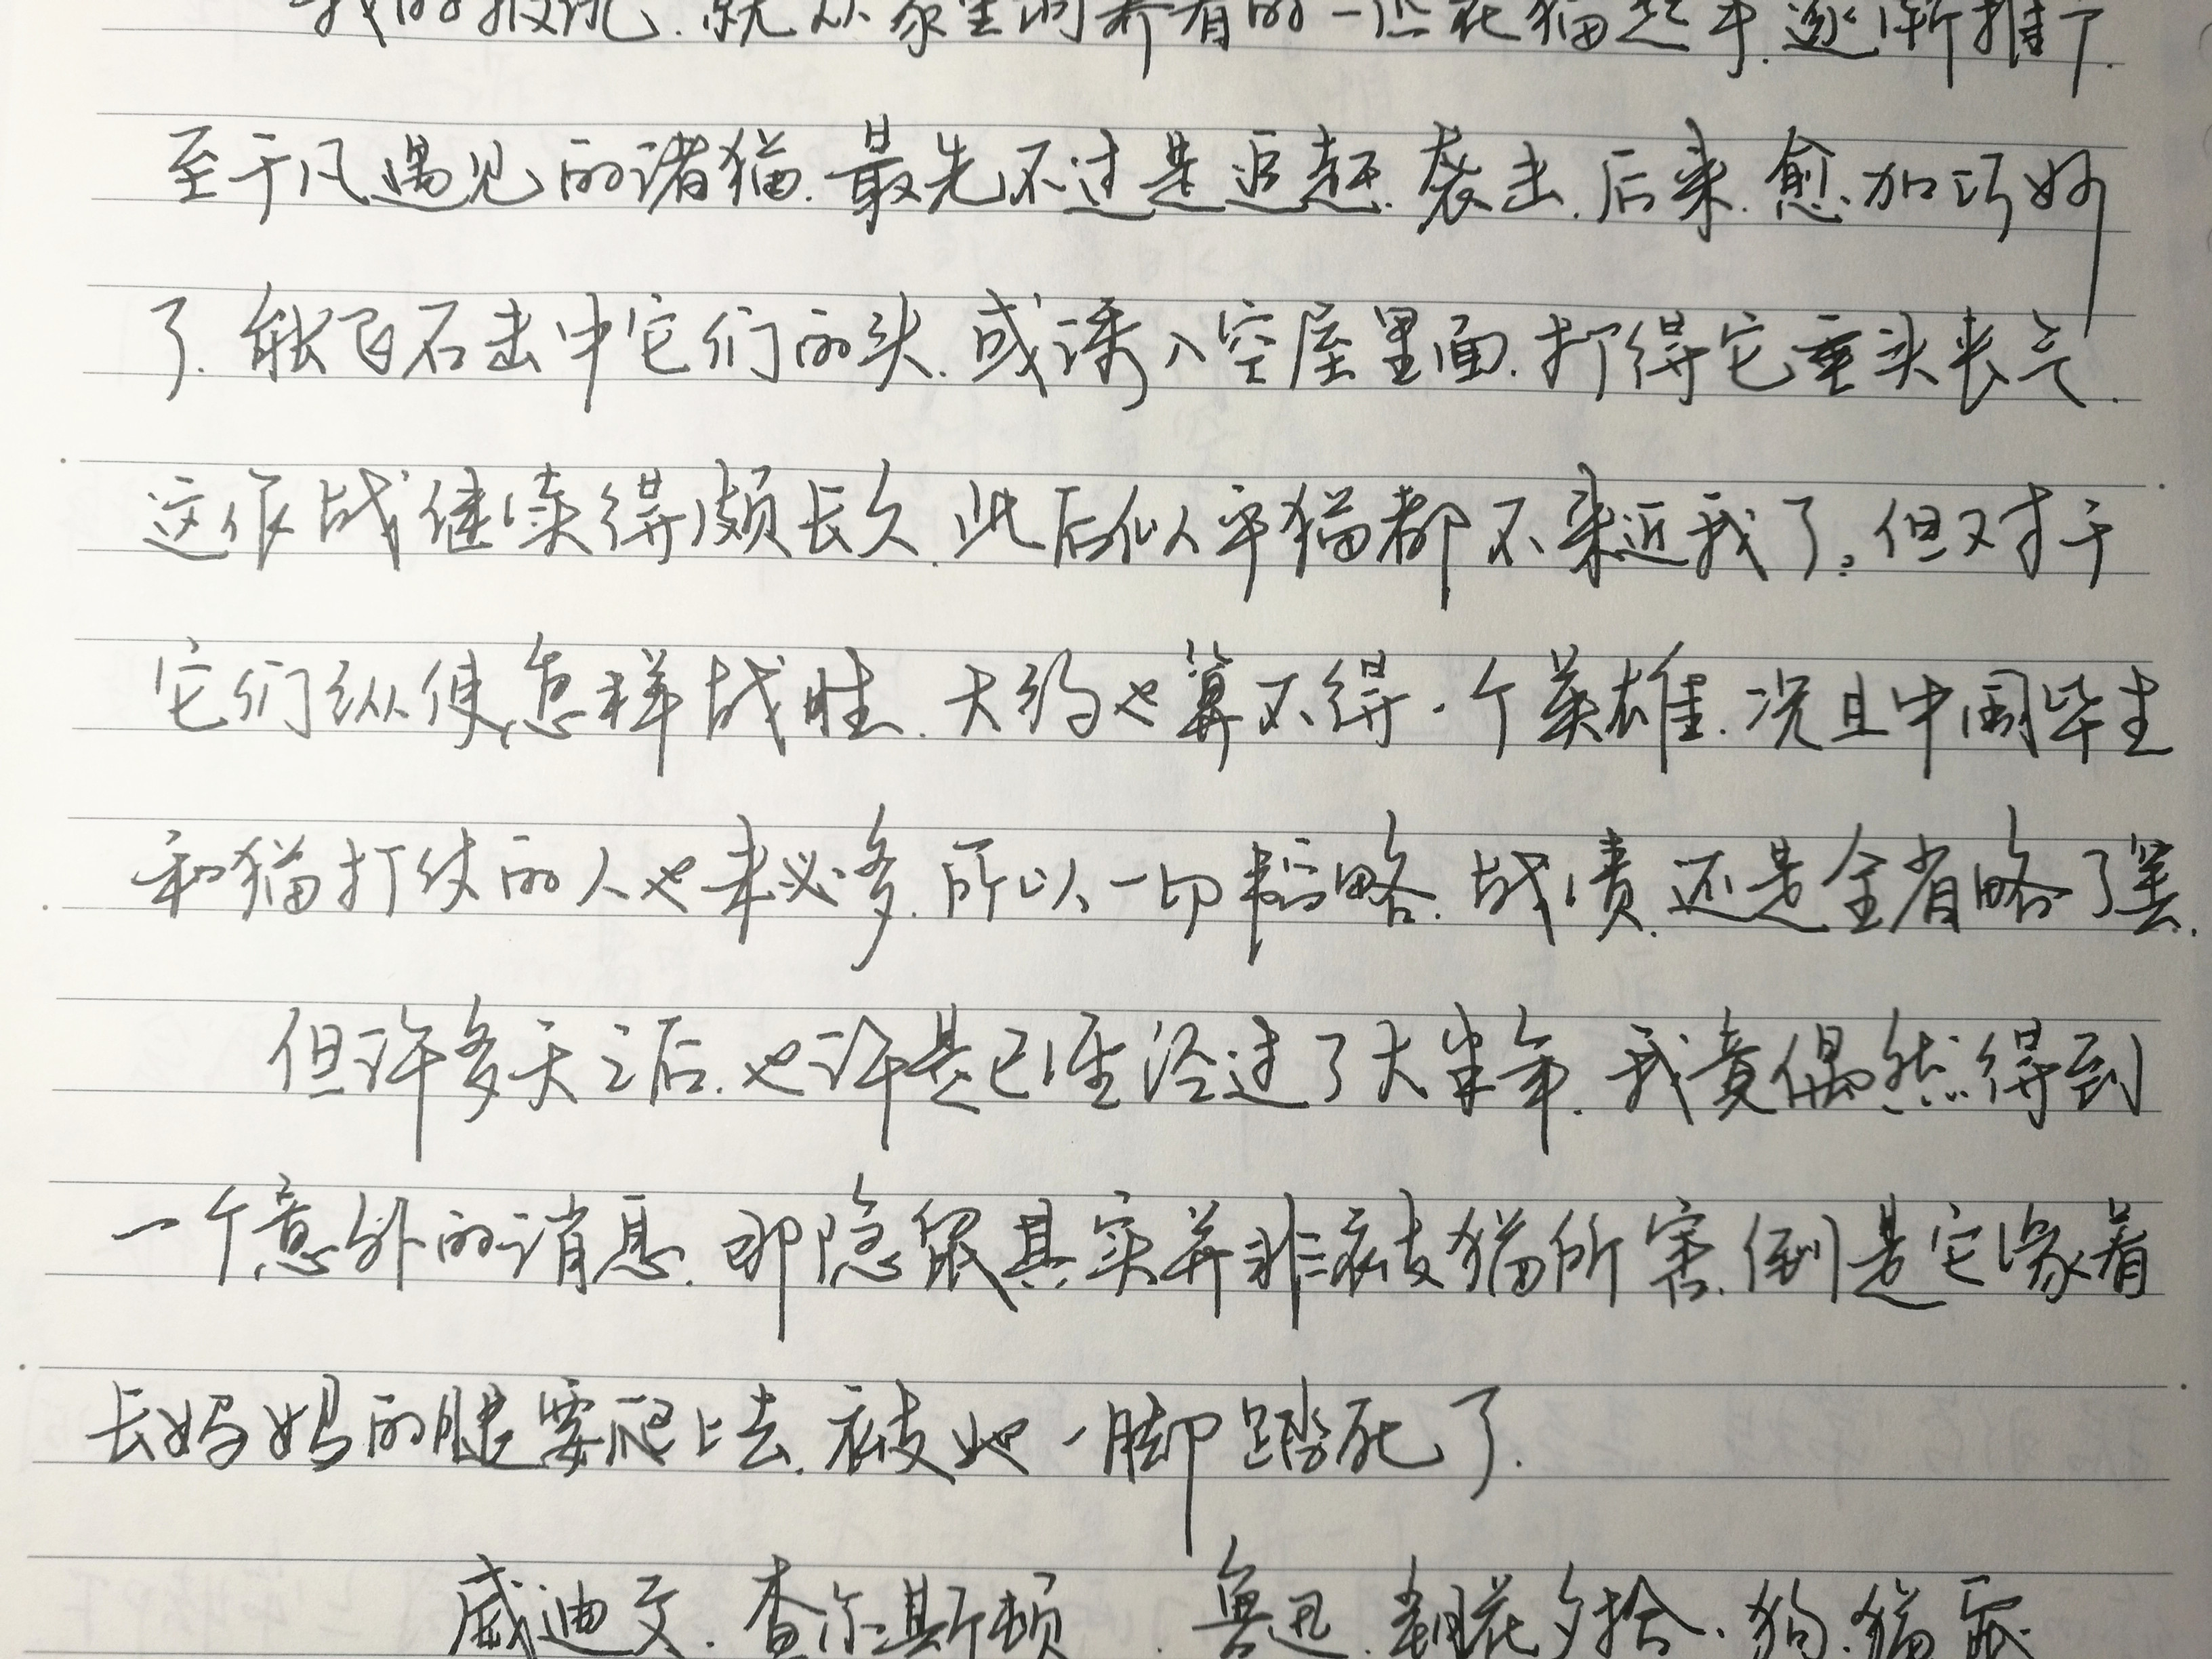 我的报仇.就从家里饲养着的一匹花猫起手.逐渐推广.
至于凡遇见的诸猫.最先不过是追赶.袭击.后来.愈加巧妙
了.能飞石击中它们的头.或诱入空屋里面.打得它垂头丧气.
这作战继续得颇长久.此后似乎猫都不来近我了。但对于
它们纵使怎样战胜.大约也算不得一个英雄.况且中国毕生
和猫打仗的人也未必多.所以一切韬略.战绩.还是全省略了罢.
但许多天之后.也许是已经经过了大半年.我竟偶然得到
一个意外的消息.那隐鼠其实并非被猫所害.倒是它缘着
长妈妈的腿要爬上去.被她一脚踏死了.
威迪文.查尔斯顿.鲁迅.朝花夕拾.狗.猫.鼠